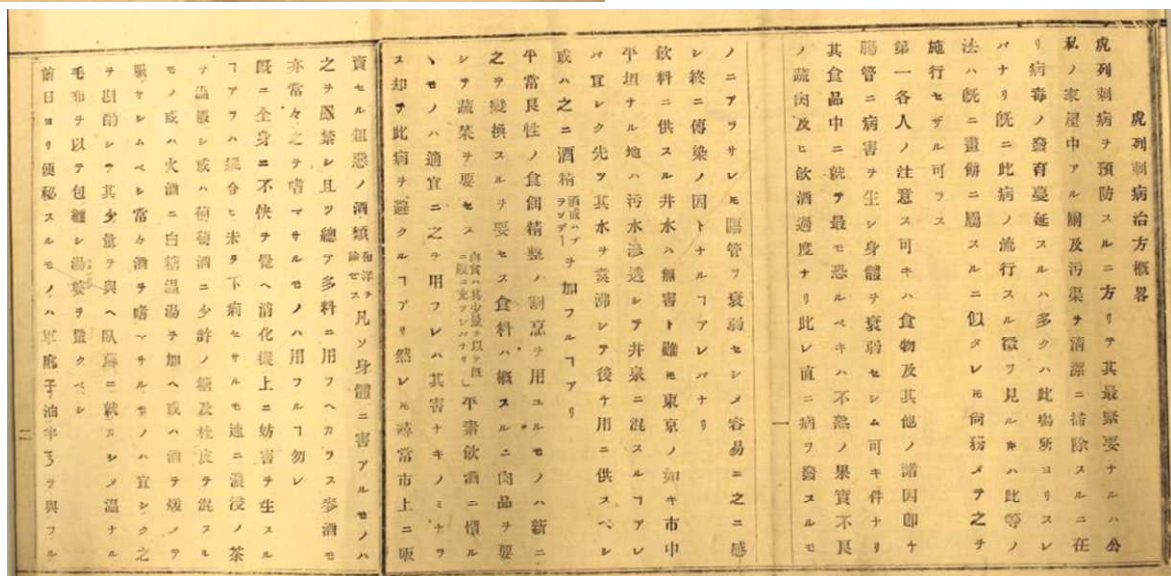 虎列刺病治方概畧
虎列刺病ヲ預防スルニ方リテ其最緊要ナルハ公
私ノ家屋中アル厠及汚渠ヲ清潔ニ掃除スルニ在
リ病毒ノ發育蔓延スルハ多クハ此場所ヨリスレ
バナリ既ニ此病ノ流行スル徴ヲ見ルキハ此等ノ
法ハ既ニ畫餅ニ屬スルニ似タレ𪜈尙務メテ之ヲ
施行セザル可ラス
第一各人ノ注意ス可キハ食物及其他ノ諸因卽ケ
腸管ニ病害ヲ生シ身體ヲ衰弱セシム可キ件ナリ
其食品中ニ就テ最モ恐ルベキハ不熟ノ果實不良
ノ蔬肉及ヒ飮酒過度ナリ此レ直ニ病ヲ發スルモ
一
ノニアラサレ𪜈膓管ヲ衰弱セシメ容易ニ之ニ感
シ終ニ傳染ノ因トナルヿアレバナリ
飮料ニ供スル井水ハ無害ト雖𪜈東京ノ如キ市中
平垣ナル地ハ汚水滲透シテ井泉ニ混スルヿアレ
バ宜シク先ツ其水ヲ煑沸シテ後チ用ニ供スベシ
或ハ之ニ酒精酒或ハブランデーヲ加フルヿアリ
平常良性ノ食餌精整ノ割烹ヲ用ユルモノハ新ニ
之ヲ變換スルヲ要セス食料ハ概スルニ肉品ヲ要
シテ蔬菜ヲ要セス肉食ハ其少量ヲ以テ既ニ服ニ充ツレバナリ」平素飮酒ニ慣ル
ヽモノハ適宜ニ之ヲ用フレハ其害ナキノミナラ
ス却テ此病ヲ避クルヿアリ然レ𪜈尋常市上ニ販
賣セル粗惡ノ酒類和洋ヲ論セス凡ソ身體ニ害アルモノハ
之ヲ嚴禁シ且ツ總テ多料ニ用フヘカラス麥酒モ
亦常々之ヲ嗜マサルモノハ用フルヿ勿レ
既ニ全身ニ不快ヲ覺ヘ消化機上ニ妨害ヲ生スル
ヿアラハ縱令ヒ未タ下痢セサルモ速ニ濃浸ノ茶
ヲ溫服シ或ハ葡萄酒ニ少許ノ糖及桂皮ヲ混スル
モノ或ハ火酒ニ白糖溫湯ヲ加ヘ或ハ酒ヲ煖メテ
服サシムベシ常々酒ヲ嗜マサルモノハ宜シク之
ヲ斟酌シテ其少量ヲ與ヘ臥蓐ニ就カシメ溫ナル
毛布ヲ以テ包纒シ湯婆ヲ置クベシ
前日ヨリ便秘スルモノハ蓖麻子油半弓ヲ與フル
二